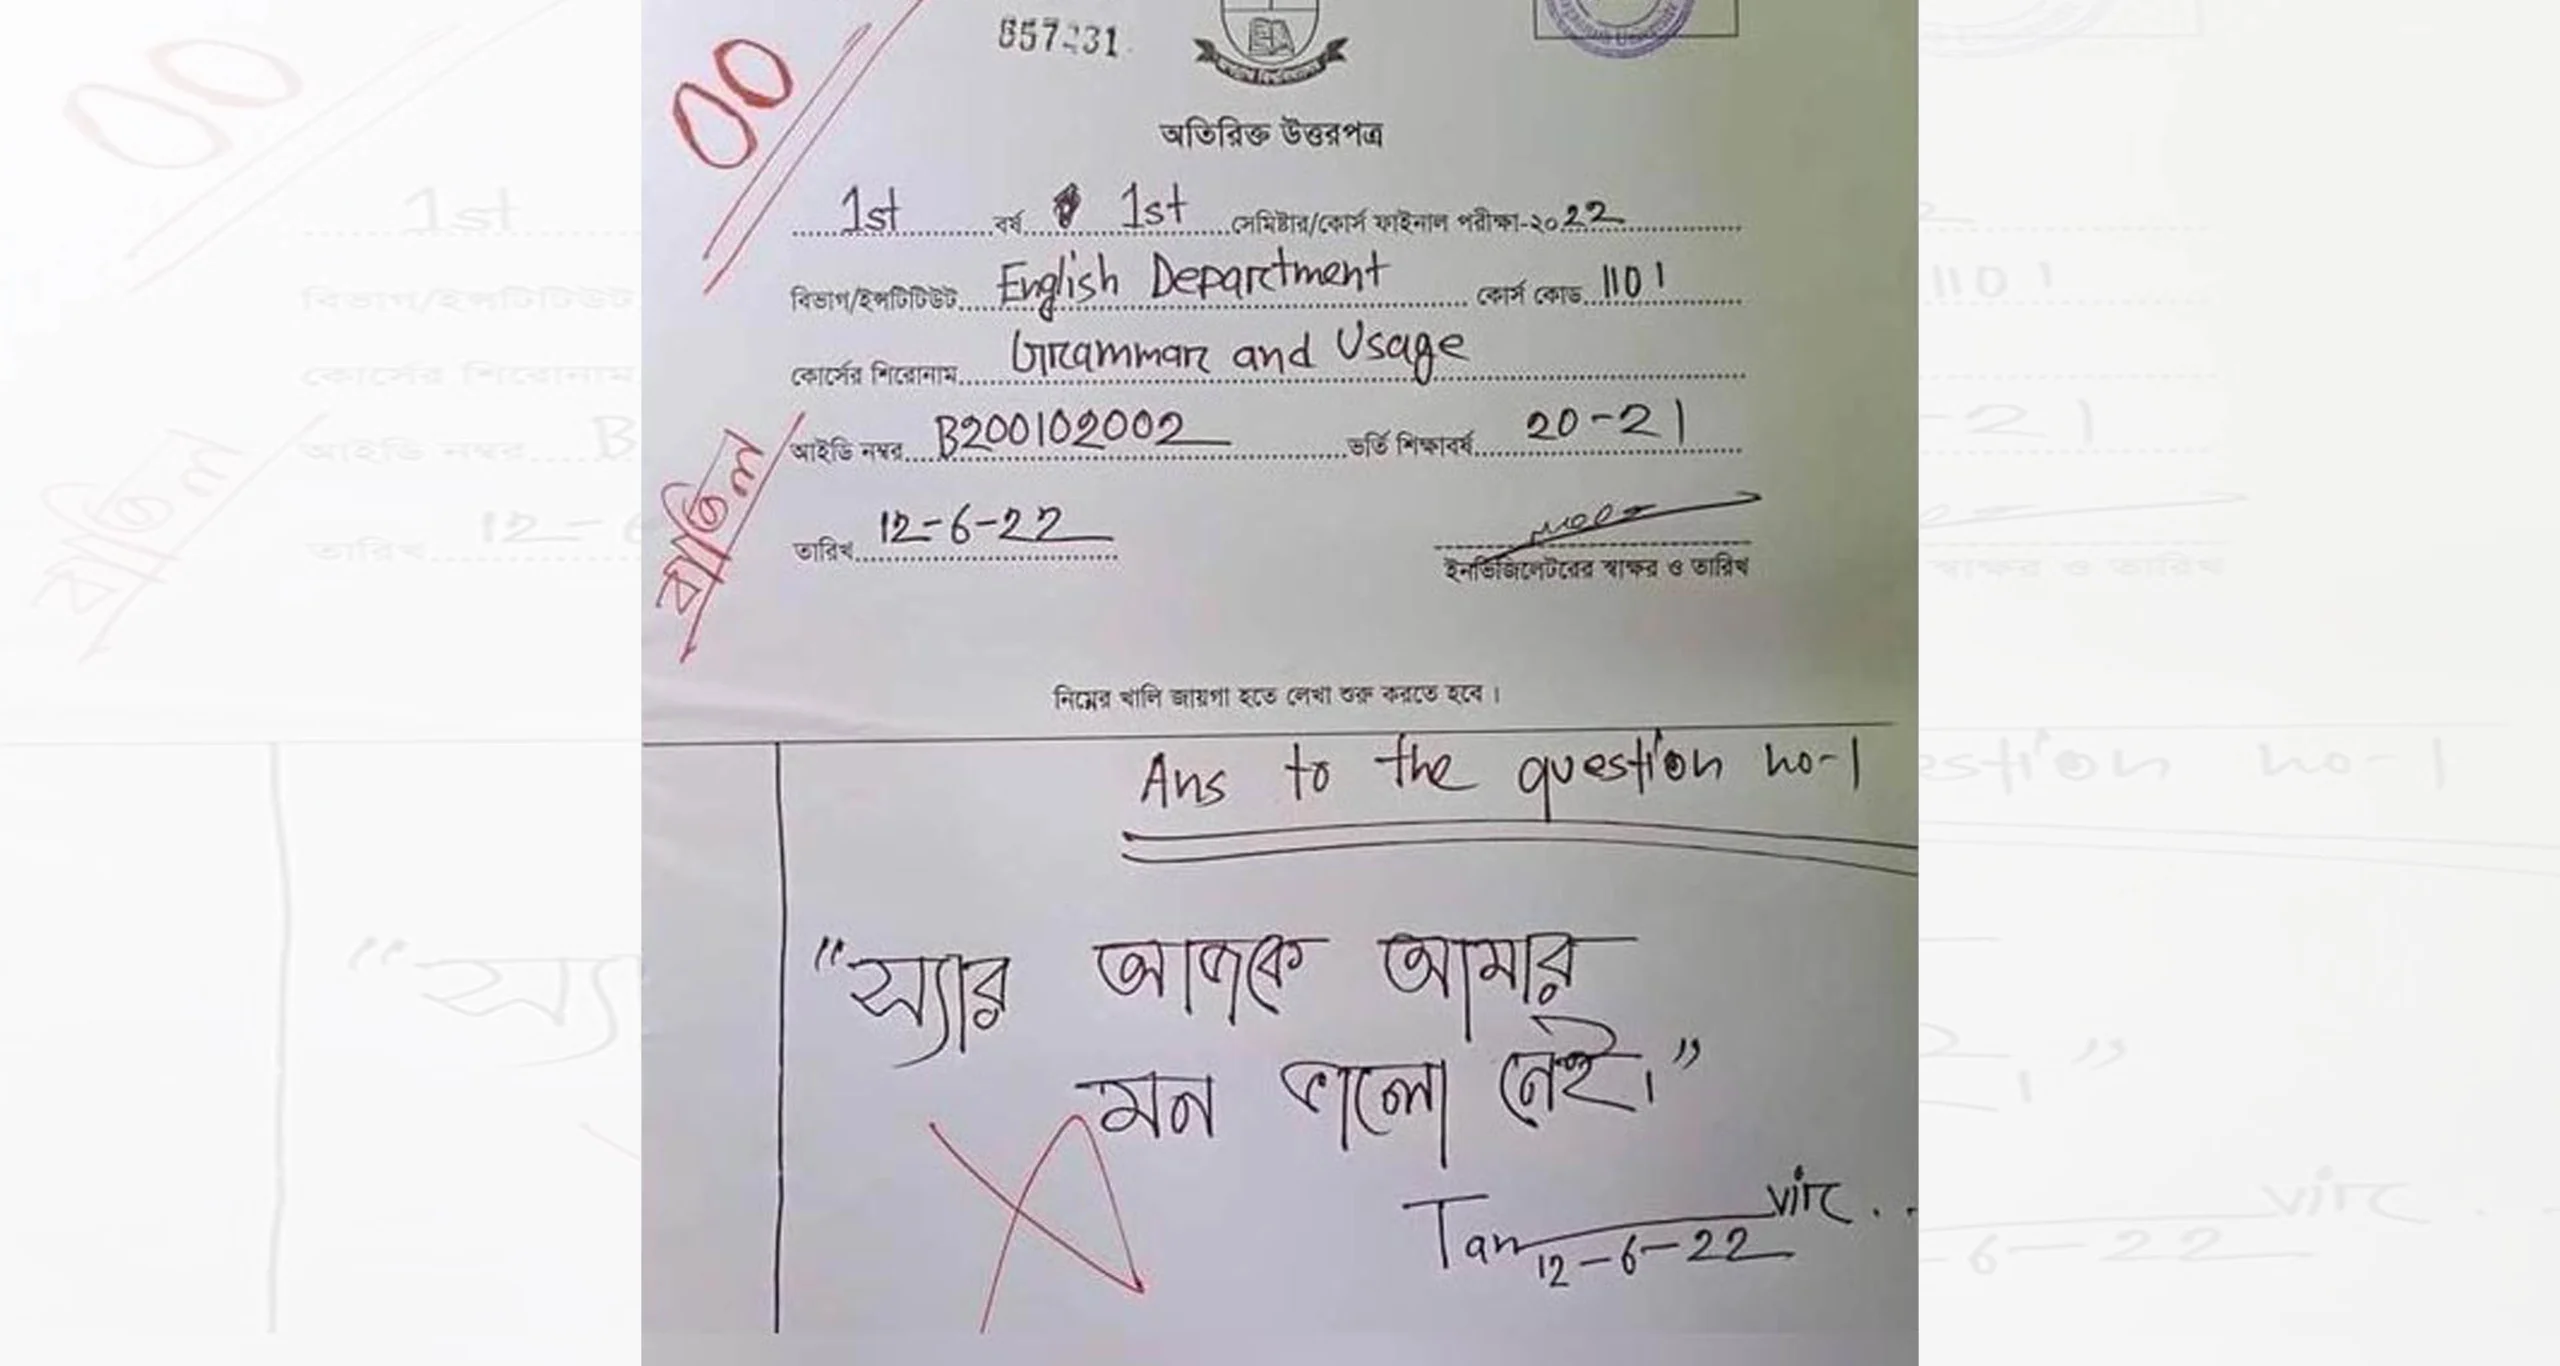 00
অতিরিক্ত উত্তরপত্র
1st বর্ষ 1st সেমিষ্টার/কোর্স ফাইনাল পরীক্ষা-২০22
বিভাগ/ইন্সটিটিউট English Department কোর্স কোড 1101
কোর্সের শিরোনাম Grammar and Usage
আইডি নম্বর B200102002 ভর্তি শিক্ষাবর্ষ 20-21
বাতিল
তারিখ 12-6-22
ইনভিজিলেটরের স্বাক্ষর ও তারিখ
নিম্নের খালি জায়গা হতে লেখা শুরু করতে হবে।
Ans to the question no-1
"স্যার আজকে আমার
মন ভালো নেই।"
Tanvir..
12-6-22